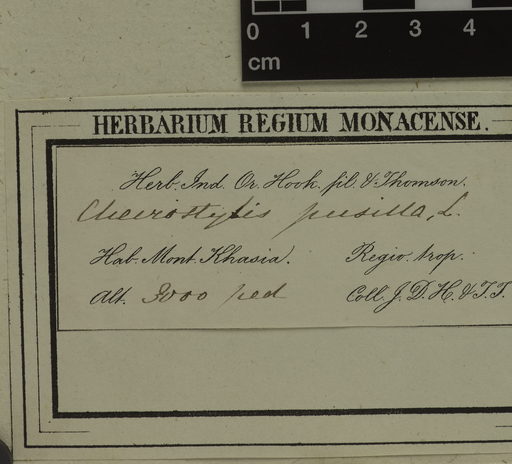 0 1 2 3 4
cm
HERBARIUM REGIUM MONACENSE.
Herb. Ind. Or. Hook. fil. & Thomson.
Cheirostylis pusilla, L.
Hab. Mont. Khasia. Regio. trop.
Alt. 3000 ped Coll. J. D. H. & T. T.